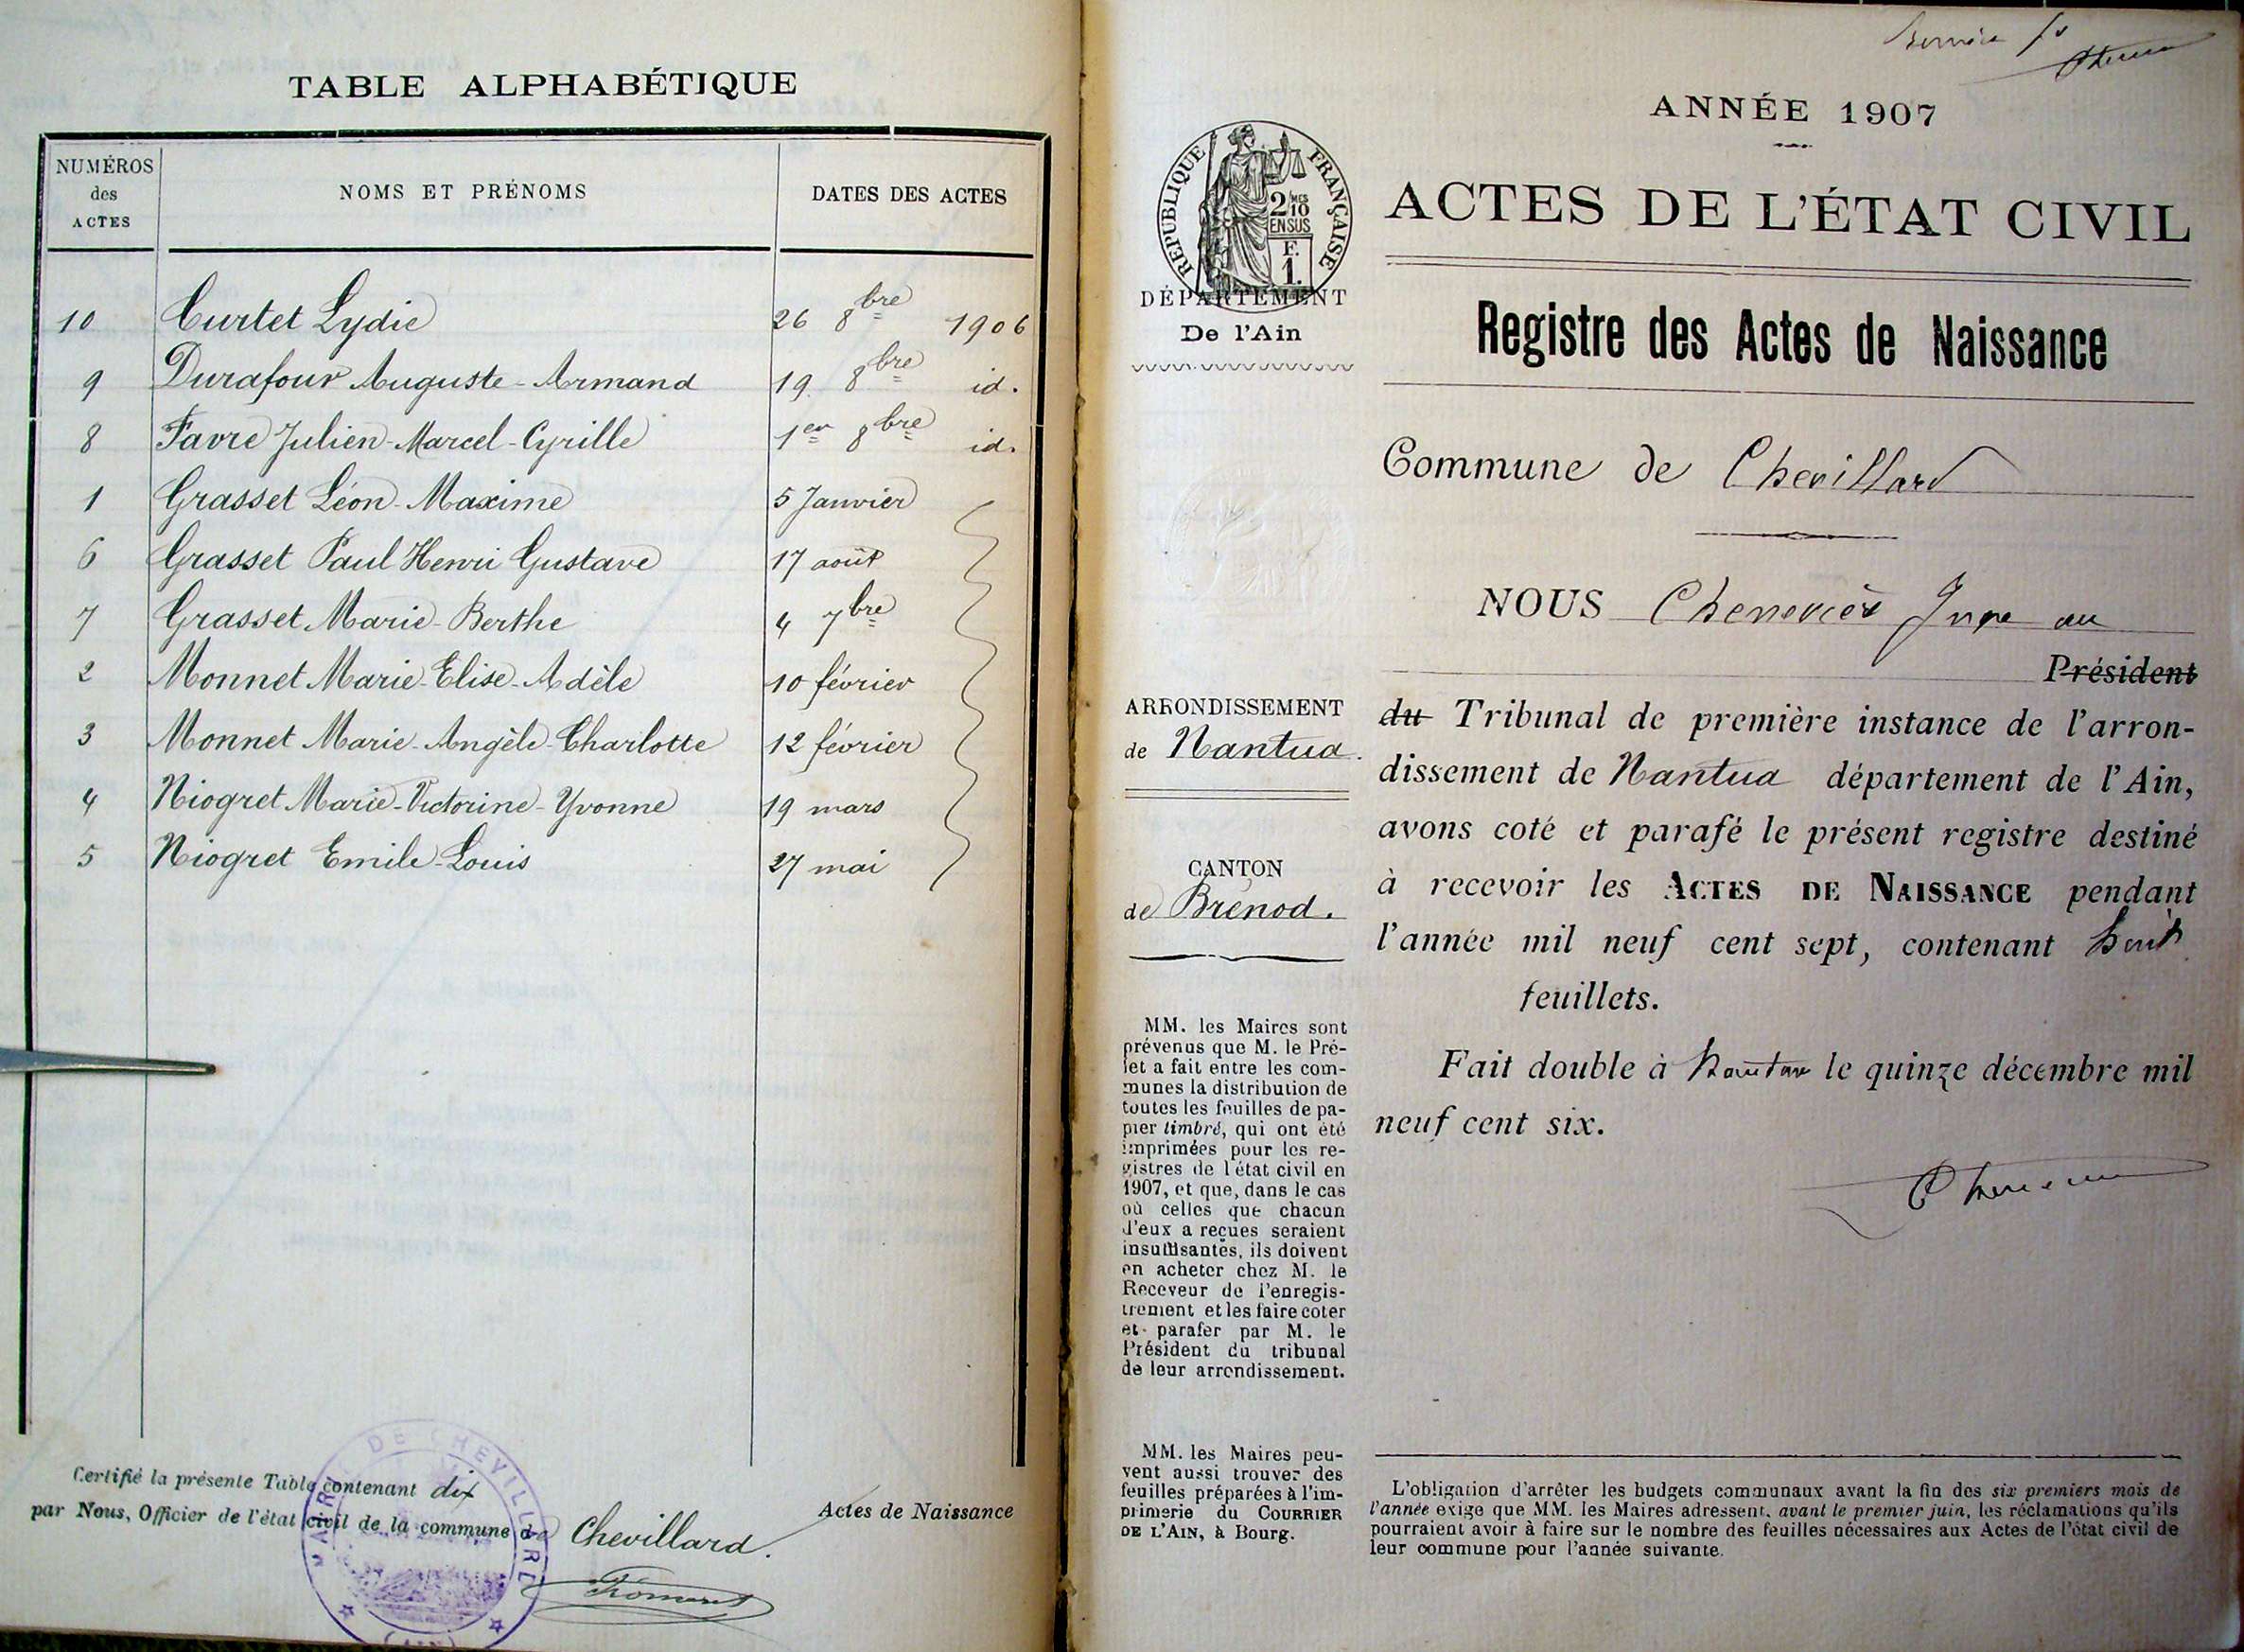 TABLE ALPHABÉTIQUE
NUMÉROS
des
ACTES
NOMS ET PRÉNOMS
DATES DES ACTES
10 Curtet Lydie 26 8bre 1906
9 Durafour Auguste-Armand 19 8bre id.
8 Favre Julien-Marcel-Cyrille 1er 8bre id.
1 Grasset Léon-Maxime 5 Janvier
6 Grasset Paul Henri Gustave 17 août
7 Grasset Marie-Berthe 4 7bre
2 Monnet Marie-Elise-Adèle 10 février
3 Monnet Marie-Angèle-Charlotte 12 février
4 Niogret Marie-Victorine-Yvonne 19 mars
5 Niogret Emile-Louis 27 mai
Certifié la présente Table contenant dix Actes de Naissance
par Nous, Officier de l'état civil de la commune de Chevillard.
MAIRIE DE CHEVILLARD
(AIN)
ANNÉE 1907
RÉPUBLIQUE FRANÇAISE
2/10MES
EN SUS
F.
1.
DÉPARTEMENT
De l'Ain
ACTES DE L'ÉTAT CIVIL
Registre des Actes de Naissance
Commune de Chevillard
NOUS Juge au
Président
du Tribunal de première instance de l'arron-
dissement de Nantua département de l'Ain,
avons coté et parafé le présent registre destiné
à recevoir les ACTES DE NAISSANCE pendant
l'année mil neuf cent sept, contenant huit
feuillets.
Fait double à Nantua le quinze décembre mil
neuf cent six.
ARRONDISSEMENT
de Nantua.
CANTON
de Brénod.
MM. les Maires sont
prévenus que M. le Pré-
fet a fait entre les com-
munes la distribution de
toutes les feuilles de pa-
pier timbré, qui ont été
imprimées pour les re-
gistres de l'état civil en
1907, et que, dans le cas
où celles que chacun
d'eux a reçues seraient
insuffisantes, ils doivent
en acheter chez M. le
Receveur de l'enregis-
trement et les faire coter
et parafer par M. le
Président du tribunal
de leur arrondissement.
MM. les Maires peu-
vent aussi trouver des
feuilles préparées à l'im-
primerie du COURRIER
DE L'AIN, à Bourg.
L'obligation d'arrêter les budgets communaux avant la fin des six premiers mois de
l'année exige que MM. les Maires adressent, avant le premier juin, les réclamations qu'ils
pourraient avoir à faire sur le nombre des feuilles nécessaires aux Actes de l'état civil de
leur commune pour l'année suivante.